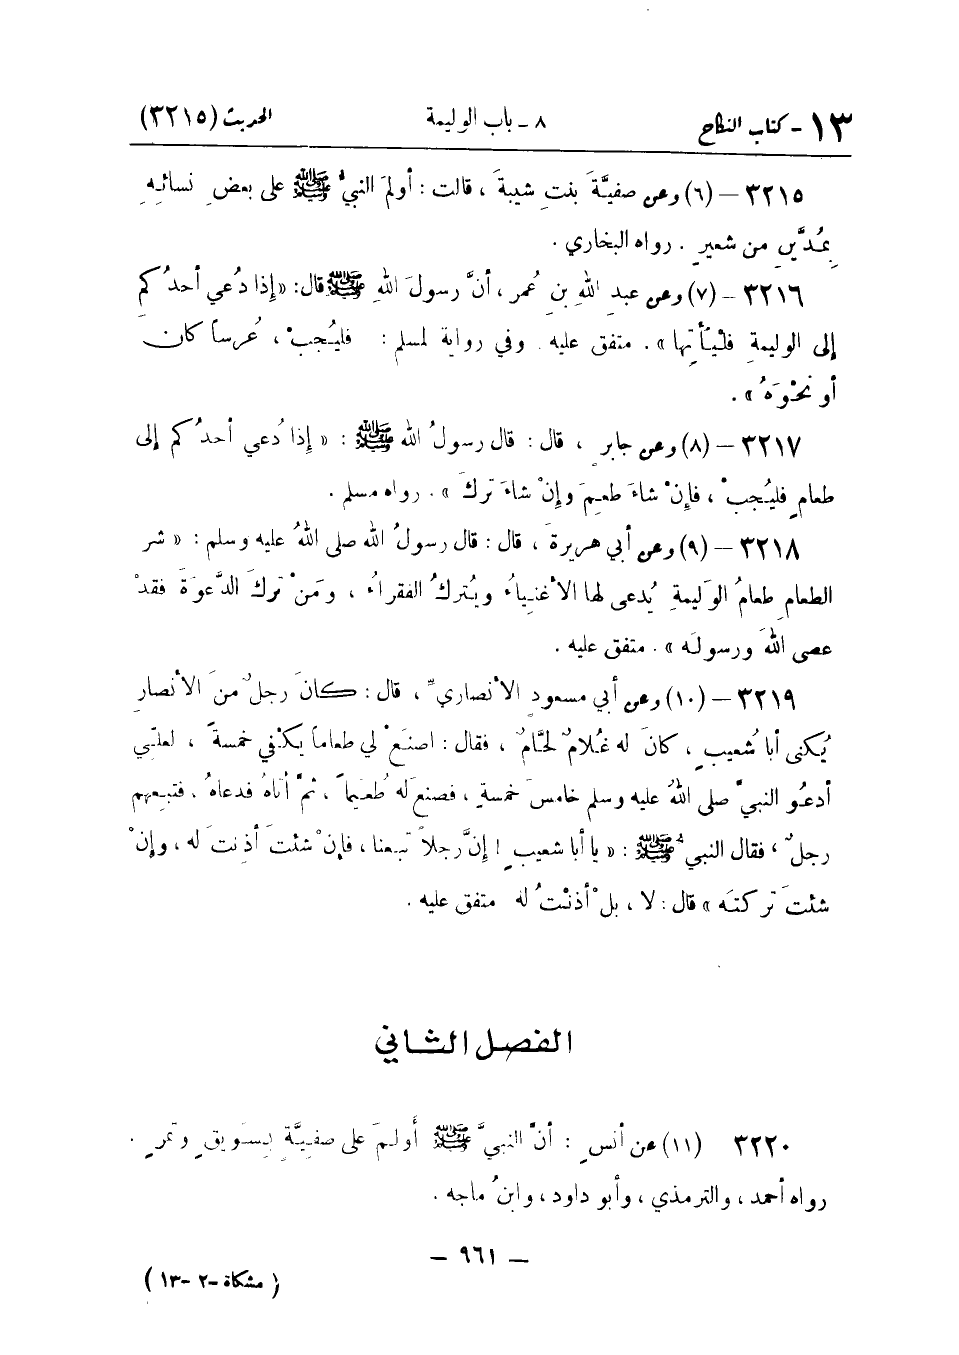 ١٣ - كتاب النكاح ٨ - باب الوليمة الحديث (٣٢١٥)
٣٢١٥ – (٦) وعن صفيَّةَ بنتِ شيبةَ ، قالت : أولمَ النبيُّ ﷺ على بعضِ نسائِهِ
بمُدَّينِ من شعيرٍ . رواه البخاري .
٣٢١٦ – (٧) وعن عبدِ اللهِ بنِ عُمر ، أنَّ رسولَ اللهِ ﷺ قال: «إذا دُعي أحدُكم
إلى الوليمةِ فلْيأتِها » . متفق عليه . وفي رواية لمسلم : فليُجبْ ، عُرساً كانَ
أو نحْوَهُ » .
٣٢١٧ – (٨) وعن جابرٍ ، قال : قال رسولُ الله ﷺ : « إذا دُعي أحدُكم إلى
طعامٍ فليُجبْ ، فإنْ شاءَ طعِمَ وإنْ شاءَ تركَ » . رواه مسلم .
٣٢١٨ – (٩) وعن أبي هريرةَ ، قال : قال رسولُ الله صلى اللهُ عليه وسلم : « شر
الطعامِ طعامُ الوَليمةِ يُدعى لها الأغنياءُ ويُتركُ الفقراءُ ، ومَنْ تركَ الدَّعوَةَ فقدْ
عصى اللهَ ورسولَه » . متفق عليه .
٣٢١٩ – (١٠) وعن أبي مسعودٍ الأنصاريِّ ، قال : كانَ رجلٌ منَ الأنصارِ
يُكنى أبا شُعيبٍ ، كانَ له غُلامٌ لحَّامٌ ، فقال : اصنَعْ لي طعاماً يكْفي خمسةً ، لعلّي
أدعُو النبيَّ صلى اللهُ عليه وسلم خامسَ خمسةٍ ، فصنعَ له طُعَيماً ، ثمَّ أتاهُ فدعاهُ ، فتبعهم
رجلٌ ، فقال النبيُّ ﷺ : « يا أبا شعيبٍ ! إنَّ رجلاً تبعنا ، فإنْ شئتَ أذِنتَ له ، وإنْ
شئتَ تركتَه » قال : لا ، بلْ أذنْتُ له . متفق عليه .
الفصل الثاني
٣٢٢٠ (١١) عن أنسٍ : أنَّ النبيَّ ﷺ أولمَ على صفيَّةٍ بِسَويقٍ وتمرٍ .
رواه أحمد ، والترمذي ، وأبو داود ، وابنُ ماجه .
– ٩٦١ –
( مشكاة –٢ –١٣ )